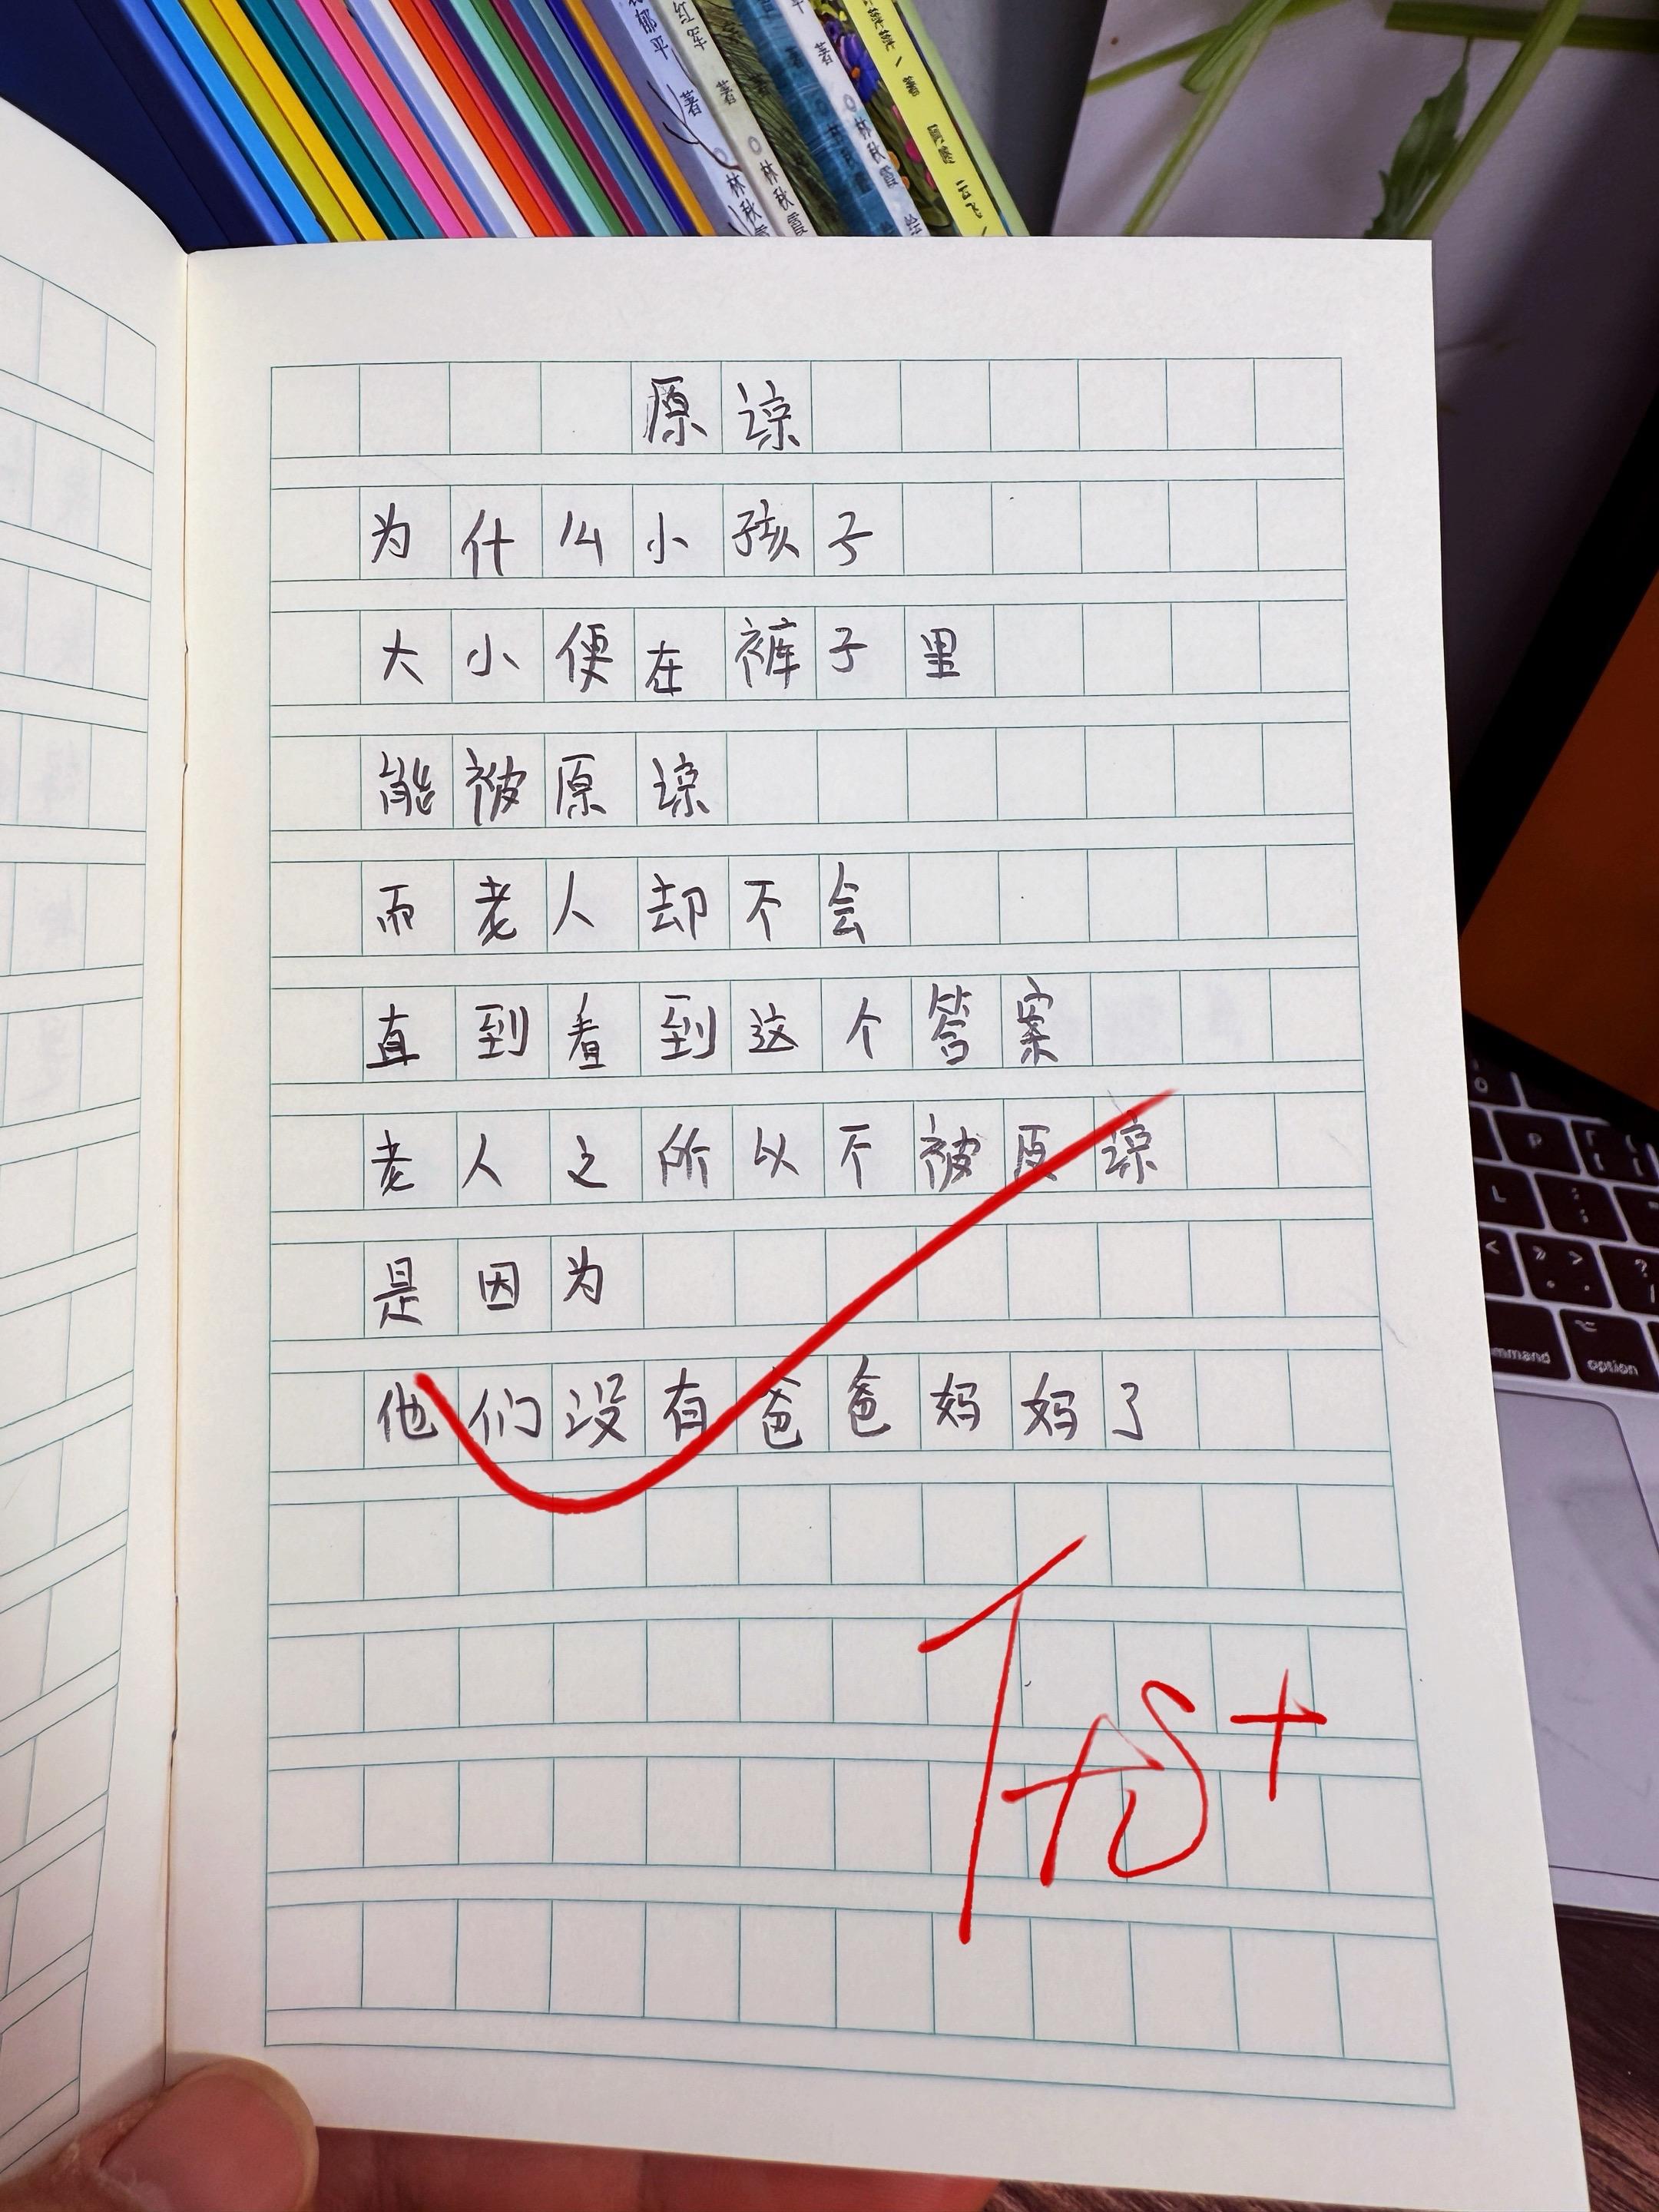 郁平 著 林秋霞
红军 著 林秋霞
平 著 林秋霞 绘
著 云飞
原谅
为什么小孩子
大小便在裤子里
能被原谅
而老人却不会
直到看到这个答案
老人之所以不被原谅
是因为
他们没有爸爸妈妈了
P
L
command
option